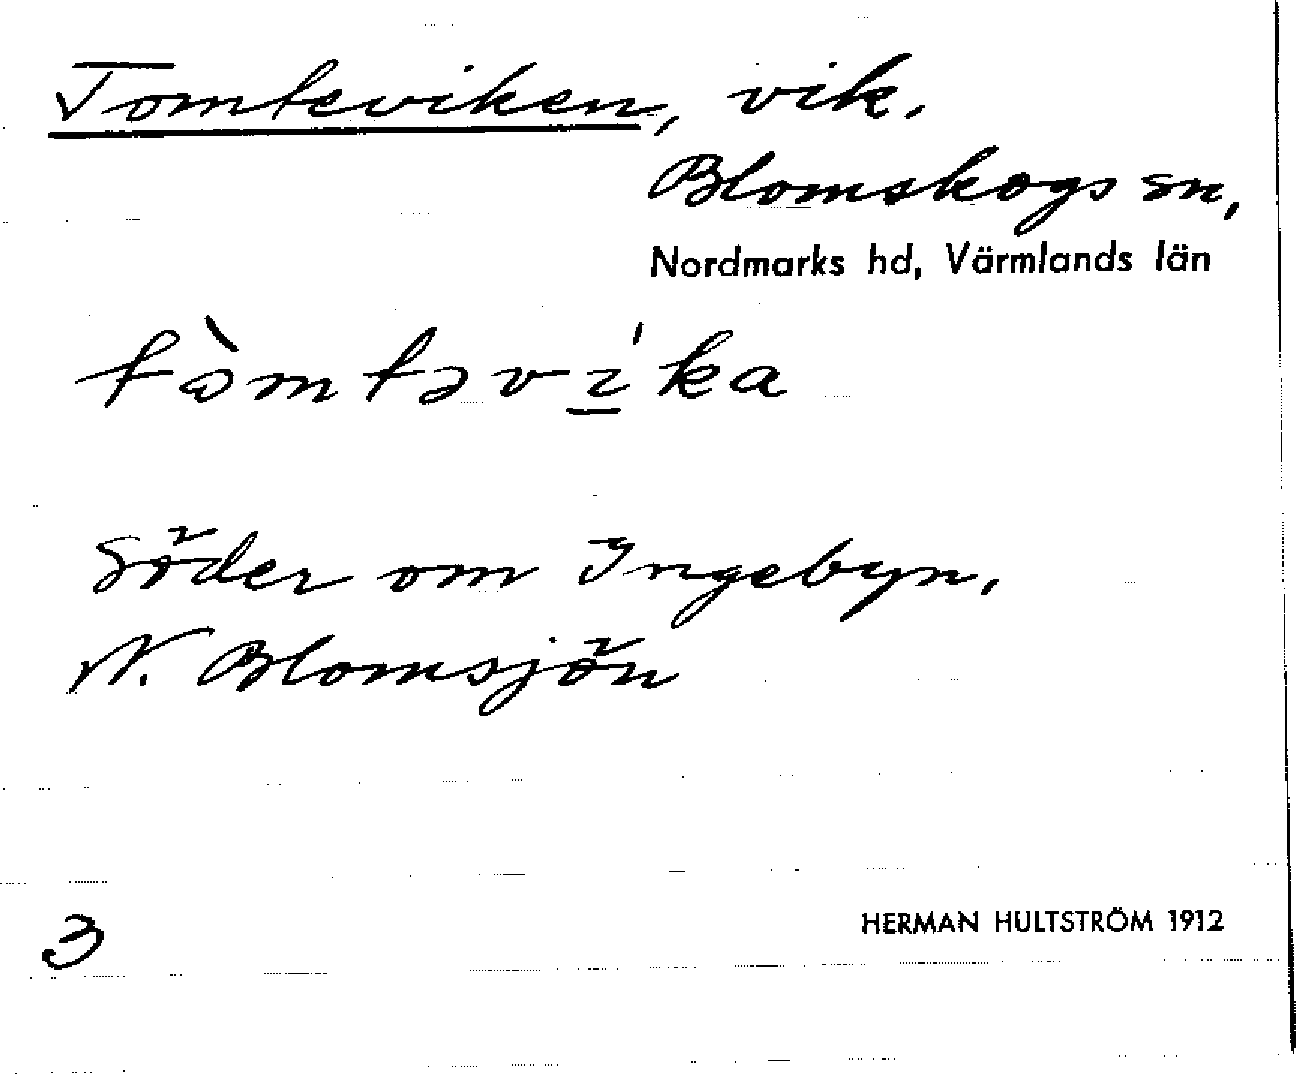 Tomteviken, vik.
Blomskogs sn,
Nordmarks hd, Värmlands län
tòmtəví̲ka
Söder om Ingebyn,
N. Blomsjön
3
HERMAN HULTSTRÖM 1912